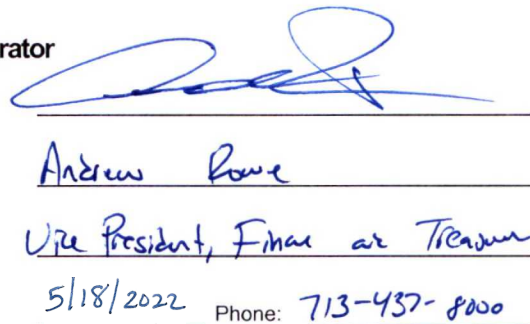 rator
Andrew Rowe
Vice President, Finan
5/18/2022 Phone: 713-437-8000